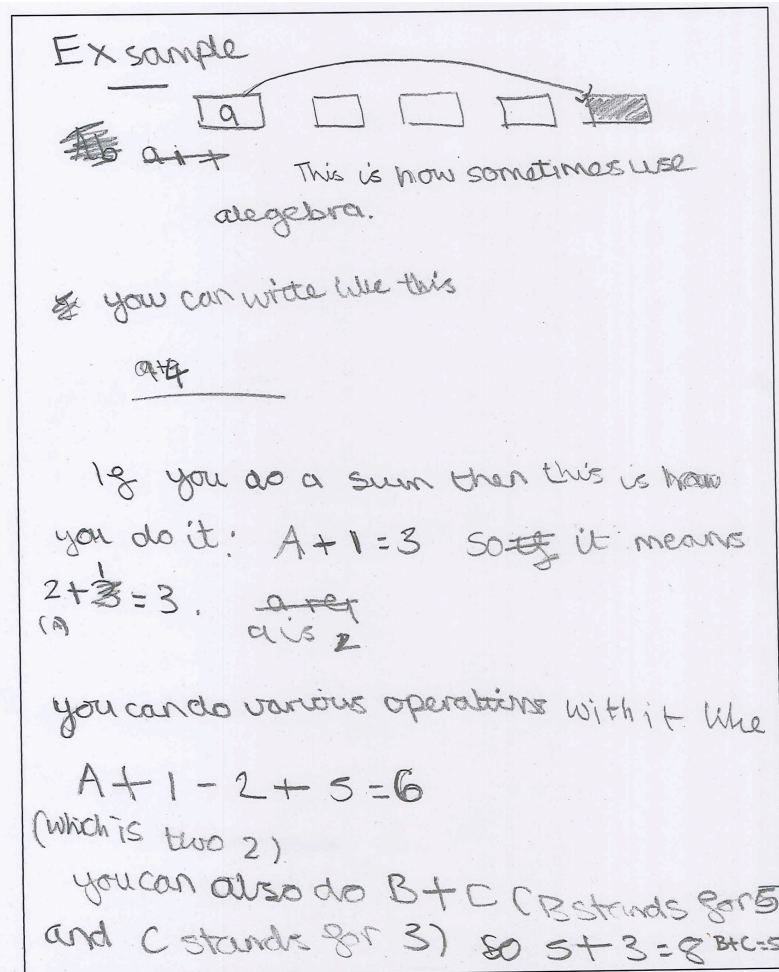 Exsample
a
This is how sometimes use
alegebra.
you can write like this
a+4
If you do a sum then this is how
you do it: A + 1 = 3 so it means
2 + 1 = 3.
(A)
a is 2
you can do various operations with it like
A + 1 - 2 + 5 = 6
(which is two 2)
you can also do B + C (B stands for 5
and C stands for 3) so 5 + 3 = 8 B+C=